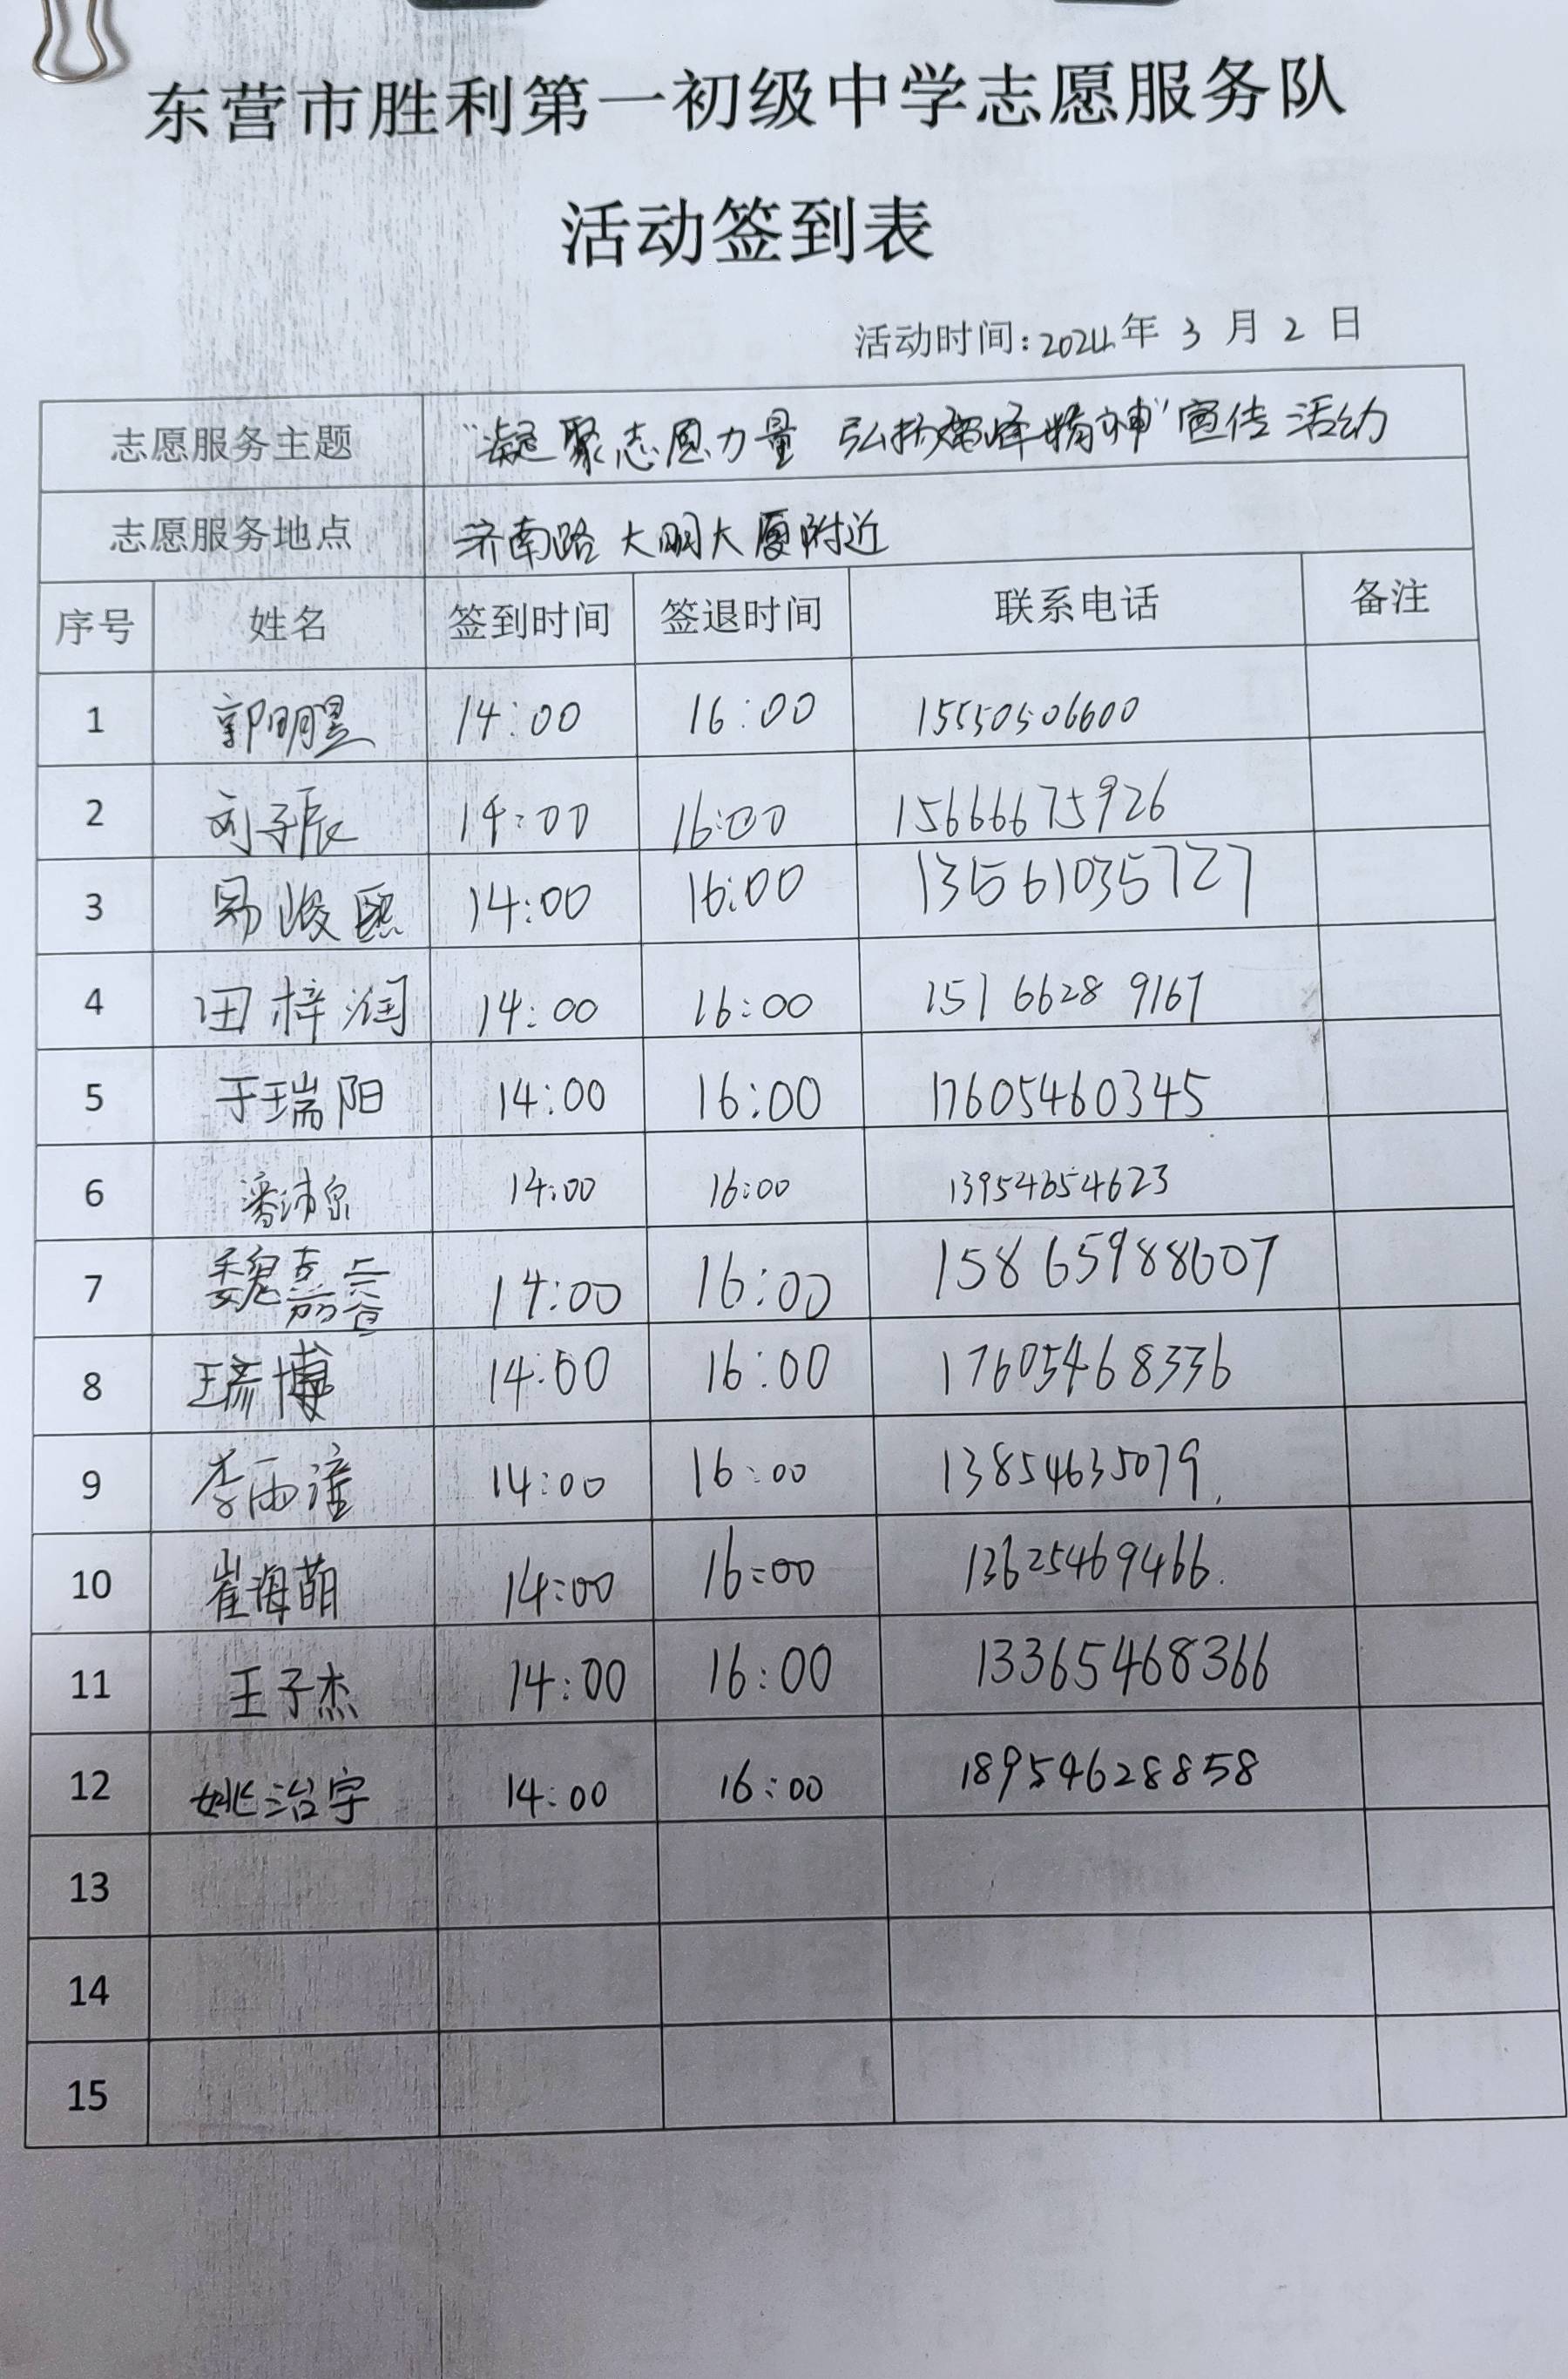 东营市胜利第一初级中学志愿服务队
活动签到表
活动时间:2024年 3 月 2 日
志愿服务主题 "凝聚志愿力量 弘扬雷锋精神"宣传活动
志愿服务地点 济南路大明大厦附近
序号 姓名 签到时间 签退时间 联系电话 备注
1 郭明昱 14:00 16:00 15550506600
2 刘子辰 14:00 16:00 15666675926
3 易峻熙 14:00 16:00 13561035727
4 田梓润 14:00 16:00 151 6628 9167
5 于瑞阳 14:00 16:00 17605460345
6 潘沛泉 14:00 16:00 13954654623
7 魏嘉 14:00 16:00 15865988607
8 14:00 16:00 17605468336
9 李雨潼 14:00 16:00 13854635079
10 崔海萌 14:00 16:00 13625469466
11 王子杰 14:00 16:00 13365468366
12 姚治宇 14:00 16:00 18954628858
13
14
15